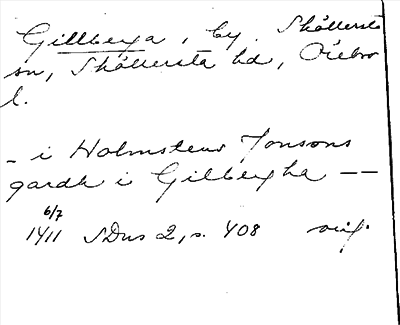 Gillberga, by. Sköllersta
sn, Sköllersta hd, Örebro
l.
_ i Holmstens Jonsons
gardh i Gilbergha __
6/7
1411 SDns 2, s. 408 orig.